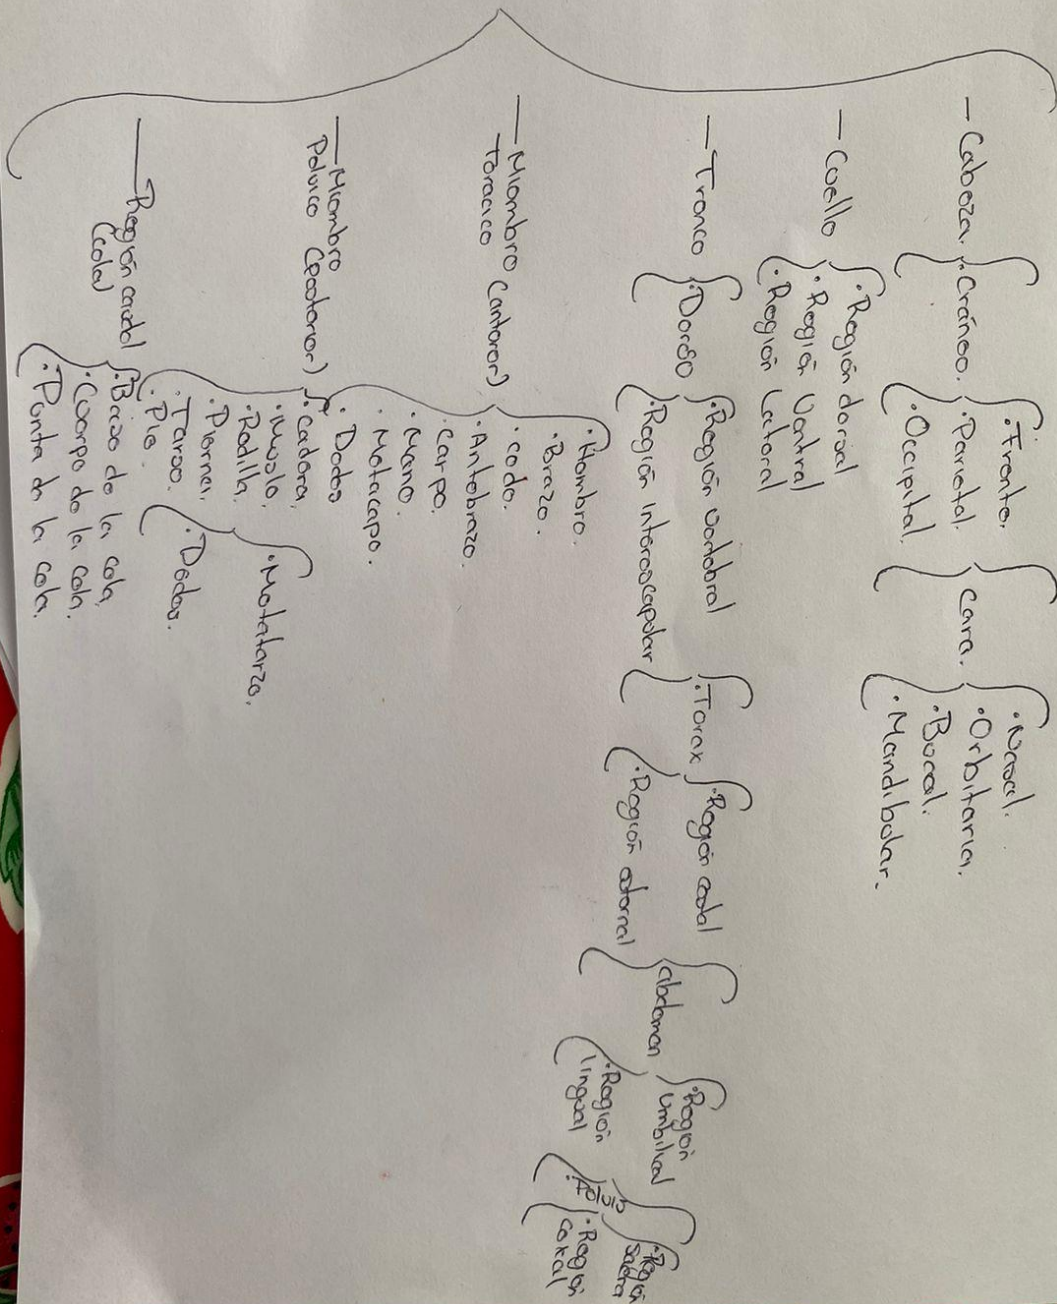 — Cabeza.
• Cráneo.
• Fronto.
• Parotal.
• Occipital.
Cara.
• Nasal.
• Orbitaria.
• Bucal.
• Mandibular.
— Cuello
• Región dorsal
• Región Ventral
• Región Lateral
— Tronco
• Dorso
• Región vertebral
• Región interoscapolar
• Torax
• Región costal
• Región esternal
abdomen
• Región
umbilical
• Región
lingual
• Región
sacra
• Región
coxal
— Miembro
toracico (anteror)
• Hombro.
• Brazo.
• codo.
• Antebrazo.
• Carpo.
• Mano.
• Metacapo.
• Dedos
— Miembro
Pelvico (posterior)
• Cadera.
• Muslo.
• Rodilla.
• Pierna.
• Tarso.
• Pie.
• Metatarzo.
• Dedos.
— Región caudal
(cola)
• Base de la cola.
• Cuerpo de la cola.
• Punta de la cola.